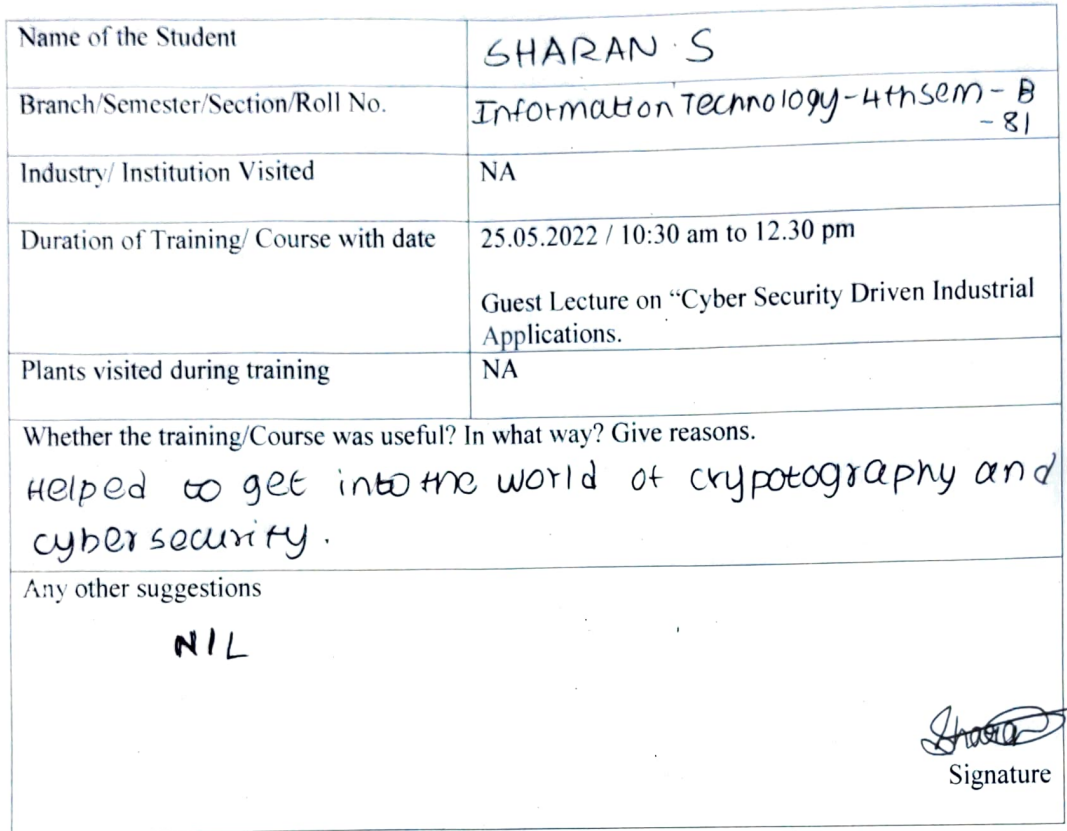 Name of the Student
SHARAN . S
Branch/Semester/Section/Roll No.
Information Technology - 4th sem - B
- 81
Industry/ Institution Visited
NA
Duration of Training/ Course with date
25.05.2022 / 10:30 am to 12.30 pm
Guest Lecture on “Cyber Security Driven Industrial
Applications.
Plants visited during training
NA
Whether the training/Course was useful? In what way? Give reasons.
Helped to get into the world of crypotography and
cyber security .
Any other suggestions
NIL
Sharan
Signature